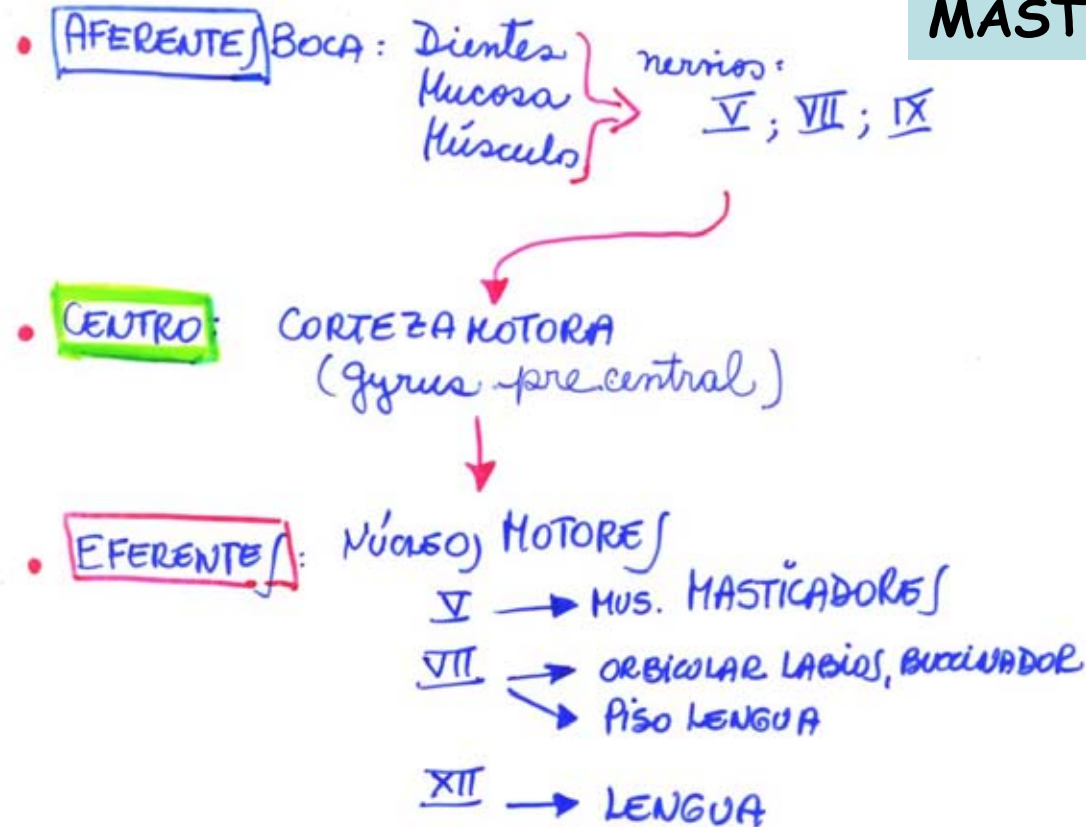 MAST
• AFERENTES BOCA: Dientes
Mucosa
Músculos
nervios:
V; VII; IX
• CENTRO: CORTEZA MOTORA
(gyrus precentral)
• EFERENTES: NÚCLEOS MOTORES
V → MUS. MASTICADORES
VII → ORBICULAR LABIOS, BUCCINADOR
→ PISO LENGUA
XII → LENGUA